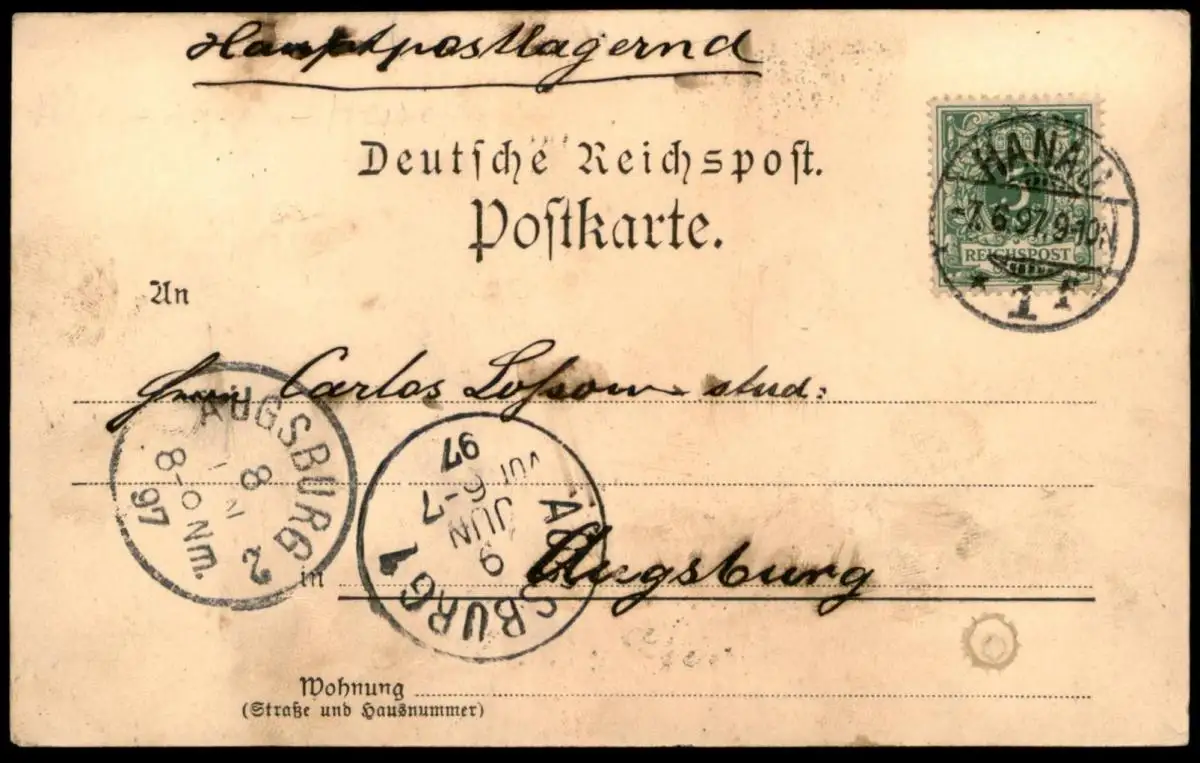 Hauptpostlagernd
Deutsche Reichspost.
Postkarte.
HANAU
-7.6.97.9-10N
* 1 F
5
REICHSPOST
An
Herrn Carlos Lossow stud:
AUGSBURG 2
8
8-9 Nm.
97
AUGSBURG 1
9 JUN
6-7
97
in Augsburg
Wohnung
(Straße und Hausnummer)